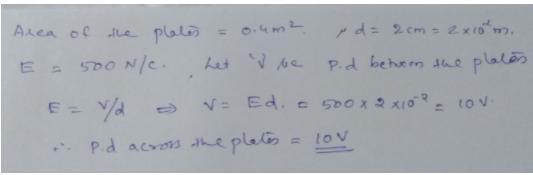 Area of the plates = 0.4m². , d = 2cm = 2 x 10⁻²m.
E = 500 N/c. Let 'V' be p.d between the plates
E = V/d ⇒ V = Ed. = 500 x 2 x 10⁻² = 10V.
∴ P.d across the plates = 10V